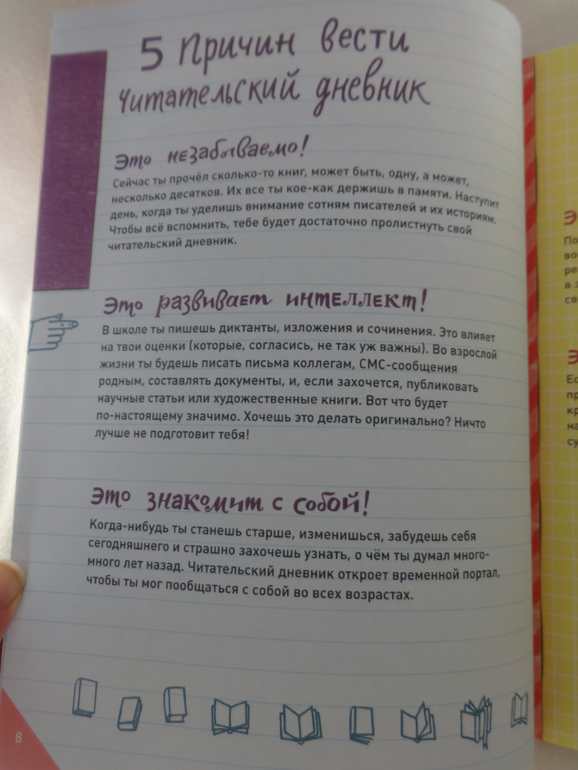 5 Причин вести
читательский дневник
Это незабываемо!
Сейчас ты прочёл сколько-то книг, может быть, одну, а может,
несколько десятков. Их все ты кое-как держишь в памяти. Наступит
день, когда ты уделишь внимание сотням писателей и их историям.
Чтобы всё вспомнить, тебе будет достаточно пролистнуть свой
читательский дневник.
Это развивает интеллект!
В школе ты пишешь диктанты, изложения и сочинения. Это влияет
на твои оценки (которые, согласись, не так уж важны). Во взрослой
жизни ты будешь писать письма коллегам, СМС-сообщения
родным, составлять документы, и, если захочется, публиковать
научные статьи или художественные книги. Вот что будет
по-настоящему значимо. Хочешь это делать оригинально? Ничто
лучше не подготовит тебя!
Это знакомит с собой!
Когда-нибудь ты станешь старше, изменишься, забудешь себя
сегодняшнего и страшно захочешь узнать, о чём ты думал много-
много лет назад. Читательский дневник откроет временной портал,
чтобы ты мог пообщаться с собой во всех возрастах.
8